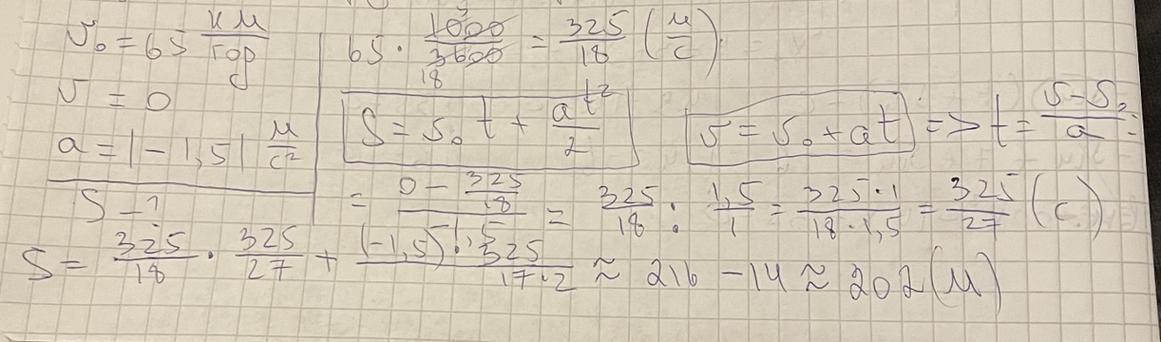 v₀ = 65 км/год
65 · 1000/3600 = 325/18 (м/с)
5
18
v = 0
a = |-1,5| м/с²
S = v₀t + at²/2
v = v₀ + at => t = (v - v₀)/a =
S - ?
= (0 - 325/18)/1,5 = 325/18 : 1,5/1 = 325·1/18·1,5 = 325/27 (с)
S = 325/18 · 325/27 + (-1,5) · 325/17·2 ≈ 216 - 14 ≈ 202 (м)